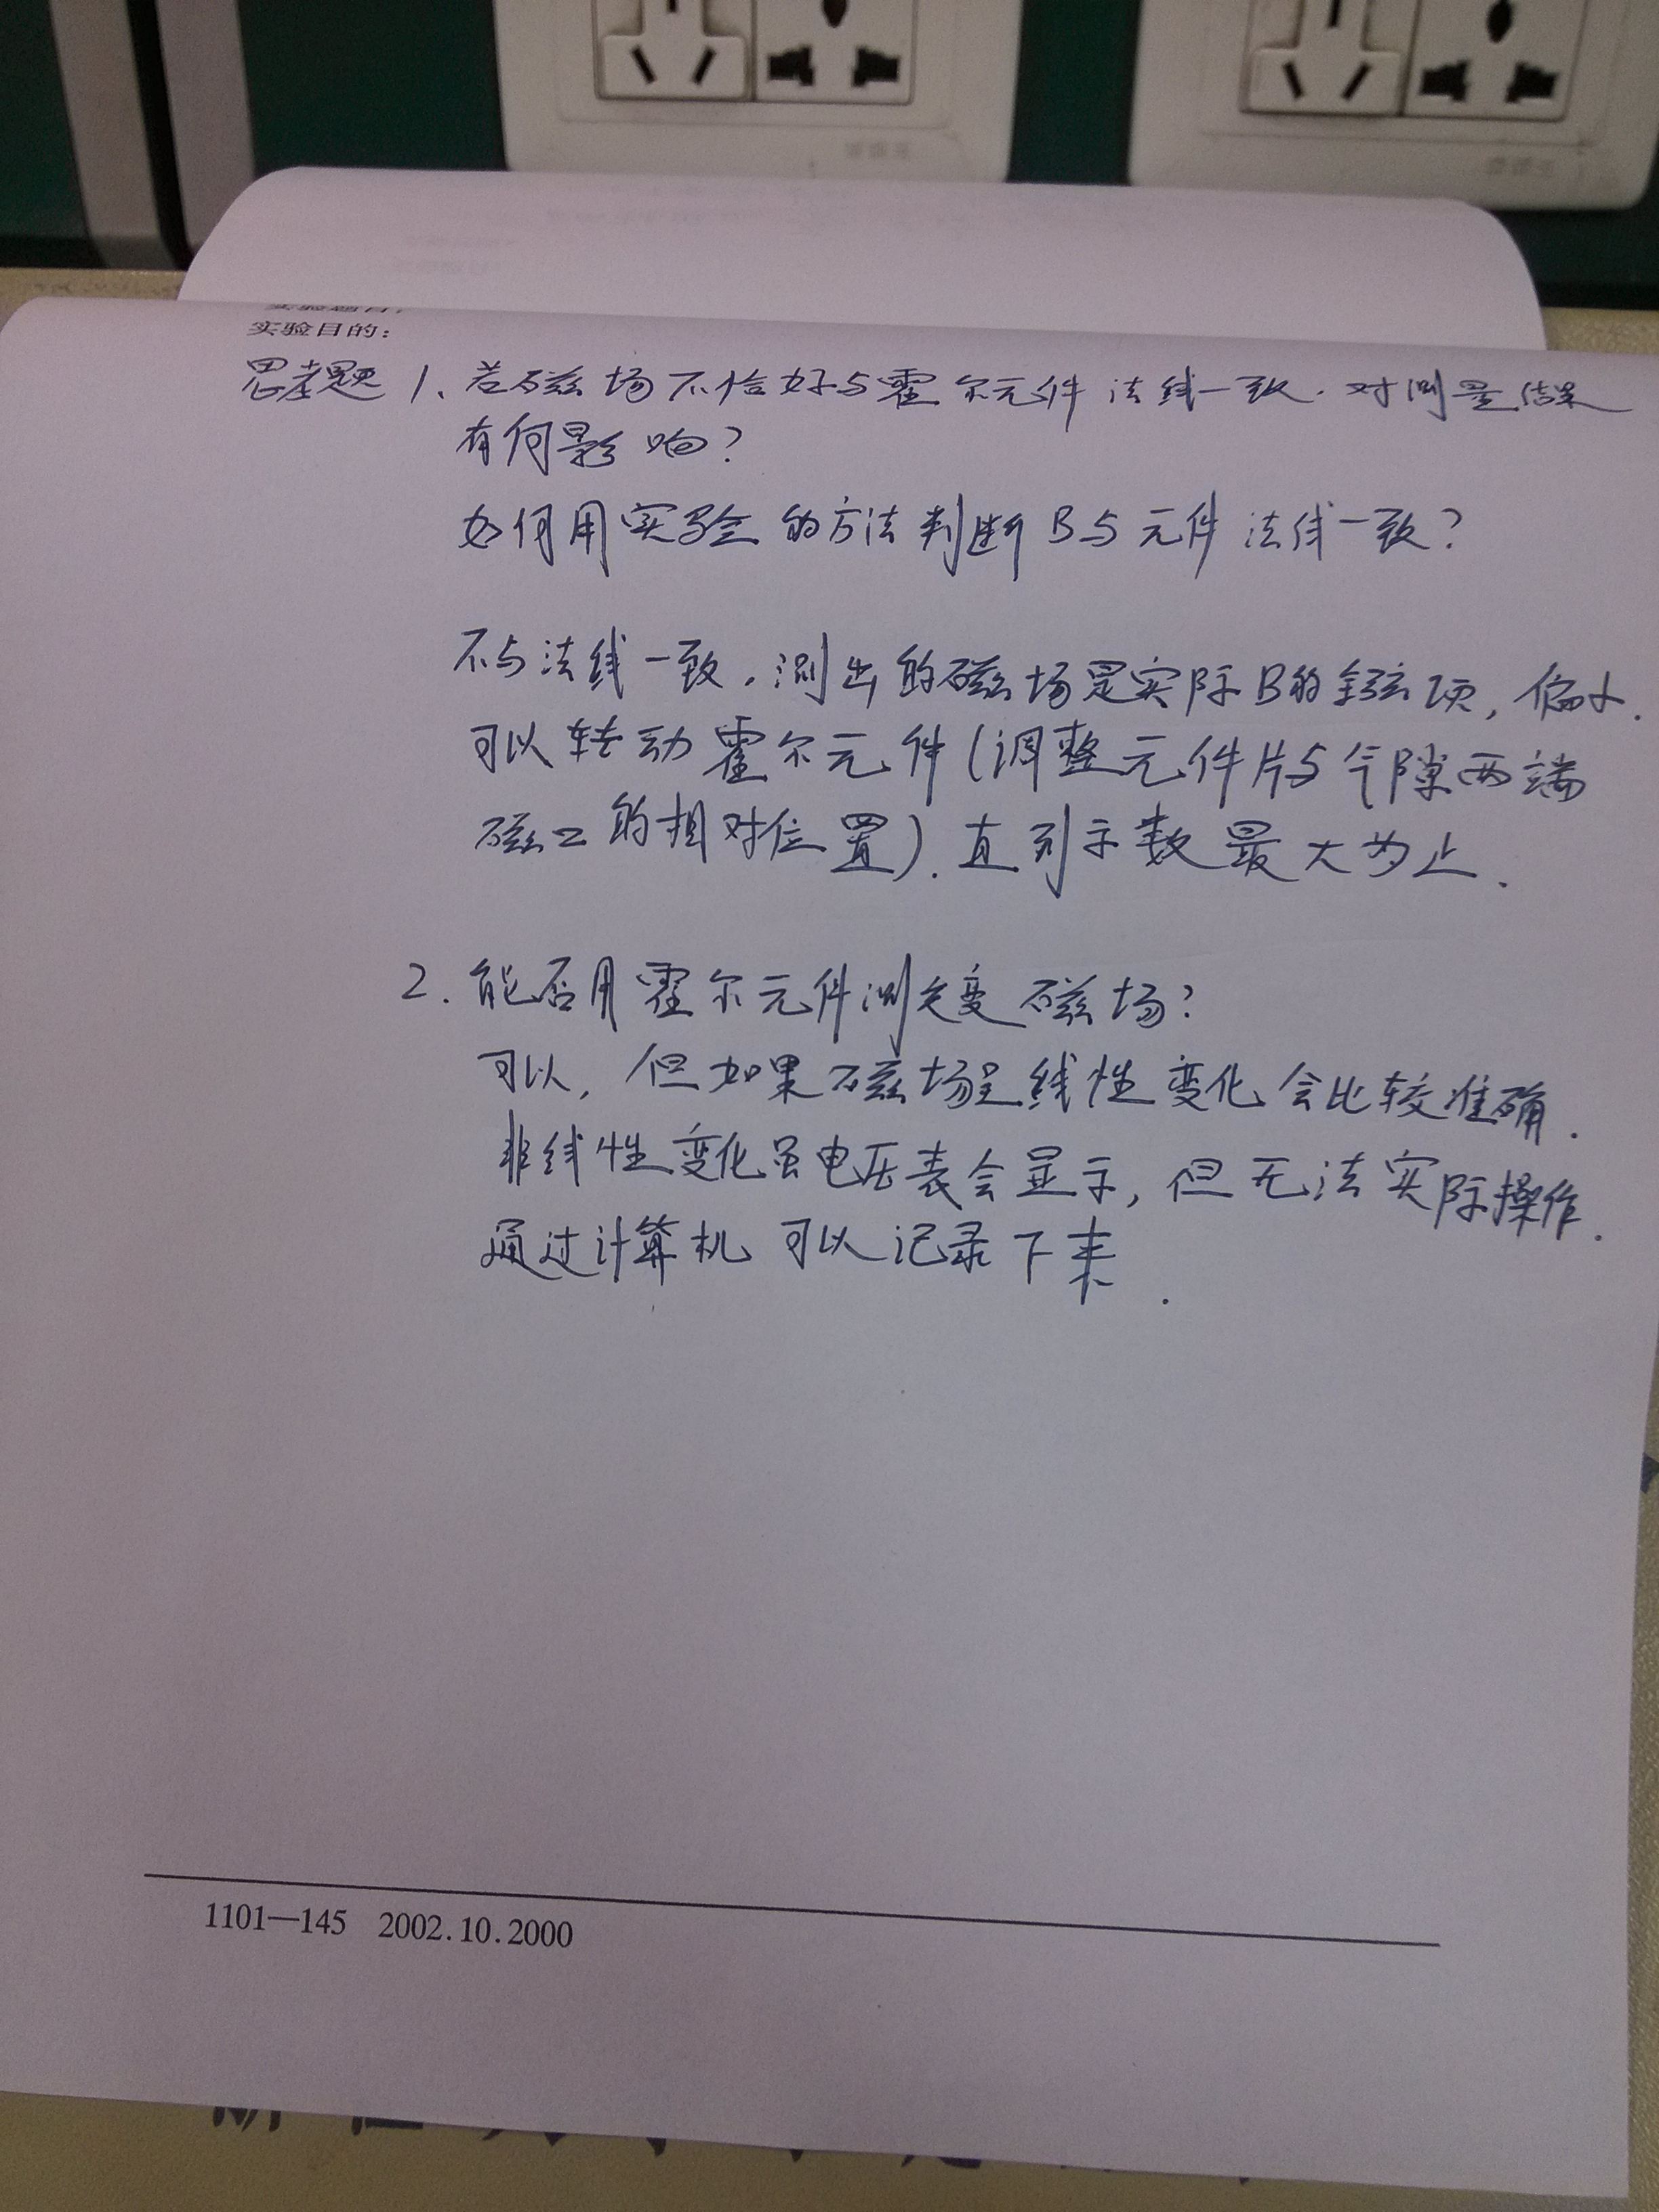 实验题目:
实验目的:
思考题 1、若磁场不恰好与霍尔元件法线一致.对测量结果
有何影响?
如何用实验的方法判断B与元件法线一致?
不与法线一致,测出的磁场是实际B的余弦项,偏小.
可以转动霍尔元件(调整元件片与气隙两端
磁口的相对位置).直到示数最大为止.
2.能否用霍尔元件测交变磁场?
可以,但如果磁场呈线性变化会比较准确.
非线性变化虽电压表会显示,但无法实际操作.
通过计算机可以记录下来.
1101—145 2002.10.2000